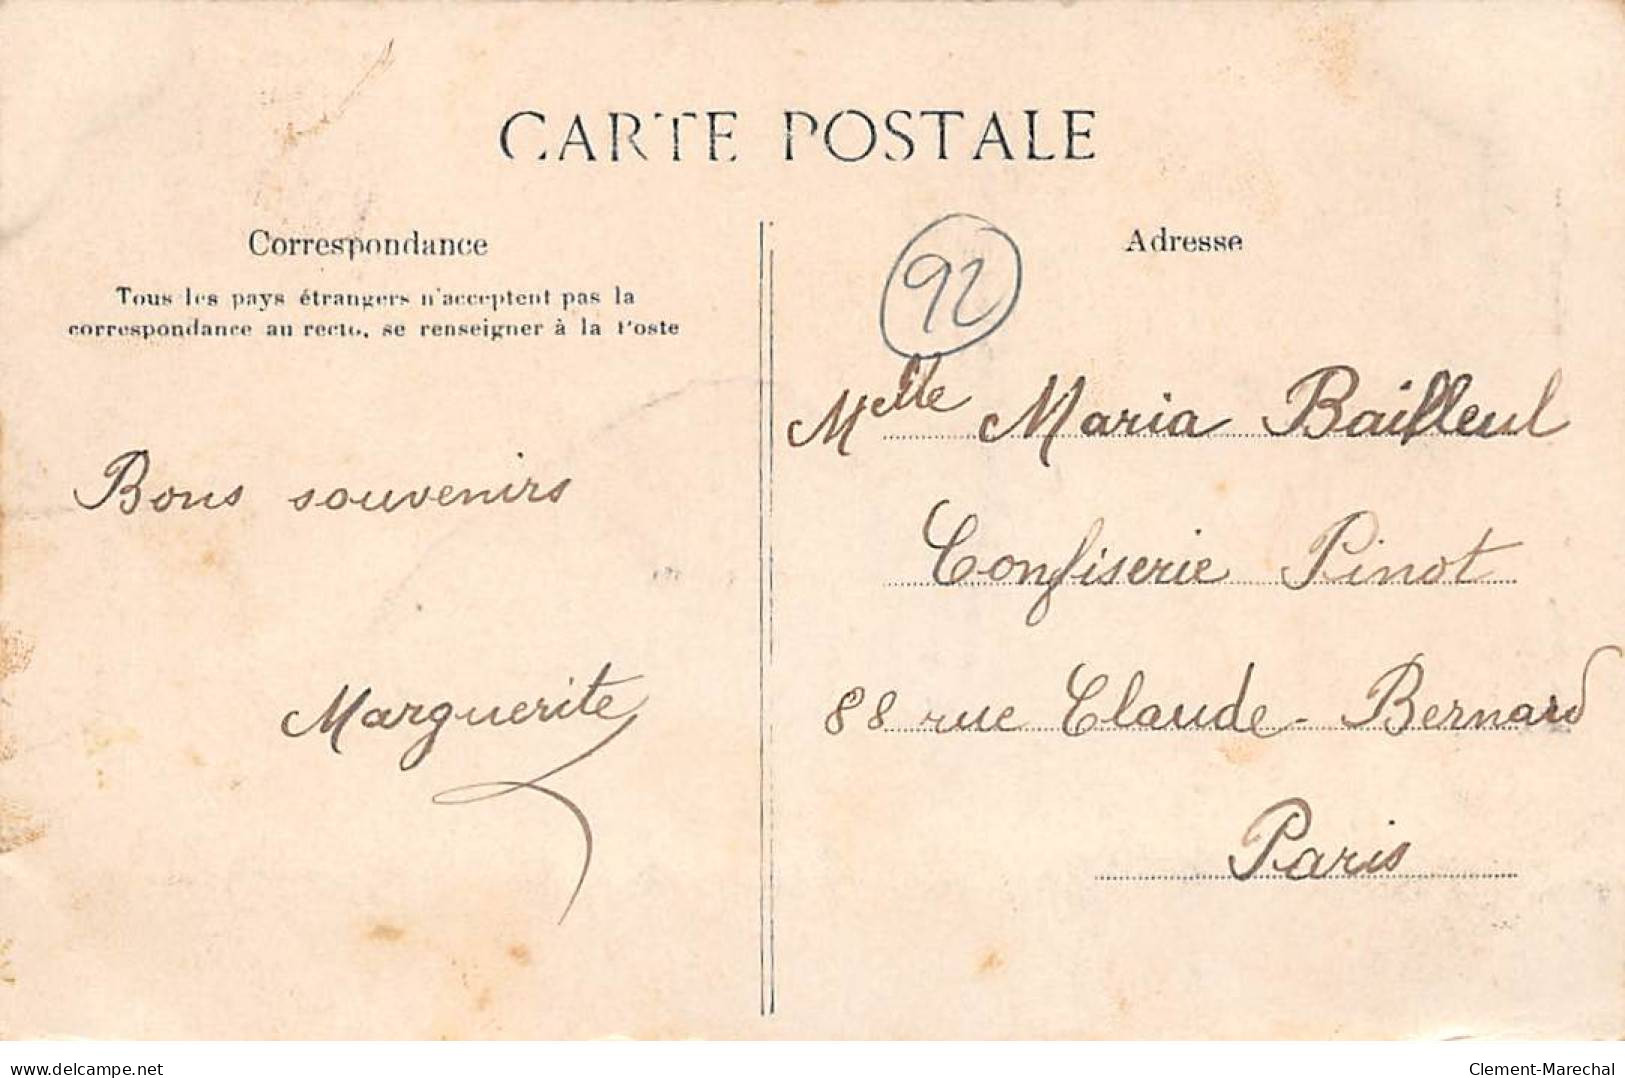 CARTE POSTALE
Correspondance
Tous les pays étrangers n'acceptent pas la
correspondance au recto, se renseigner à la Poste
Bons souvenirs
Marguerite
92
Adresse
Melle Maria Bailleul
Confiserie Pinot
88 rue Claude-Bernard
Paris
delcampe.net
Clement-Marechal